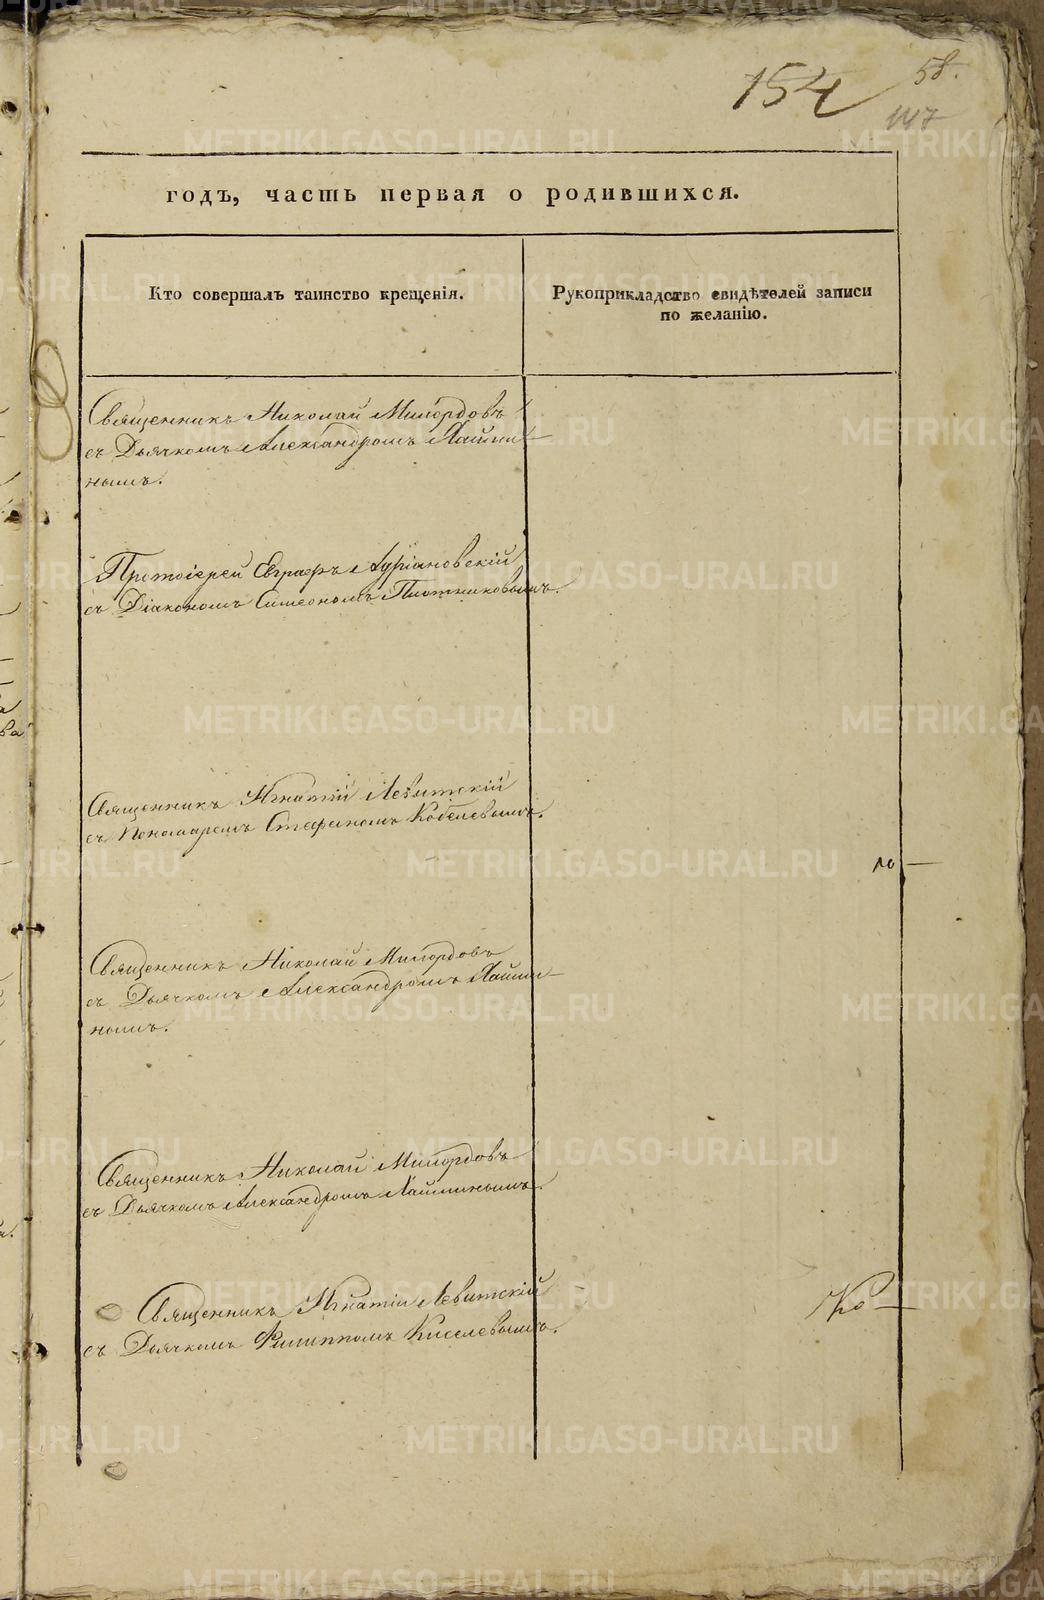 154
58.
147
годъ, часть первая о родившихся.
Кто совершалъ таинство крещенія.
Рукоприкладство свидѣтелей записи
по желанію.
Священникъ Николай Милордовъ
съ Дьячкомъ Александромъ Лайми-
нымъ.
Протоіерей Евграфъ
съ Діакономъ Симеономъ Плотниковымъ.
Священникъ Игнатій Левитскій
съ Пономаремъ Стефаномъ Кобелевымъ.
Священникъ Николай Милордовъ
съ Дьячкомъ Александромъ Лайми-
нымъ.
Священникъ Николай Милордовъ
съ Дьячкомъ Александромъ Лайминымъ.
Священникъ Игнатій Левитскій
съ Дьячкомъ Филиппомъ Киселевымъ.
METRIKI.GASO-URAL.RU